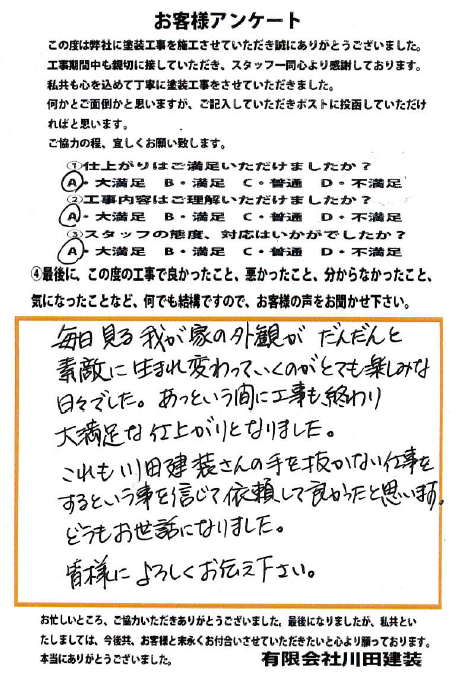 お客様アンケート
この度は弊社に塗装工事を施工させていただき誠にありがとうございました。
工事期間中も親切に接していただき、スタッフ一同心より感謝しております。
私共も心を込めて丁寧に塗装工事をさせていただきました。
何かとご面倒かと思いますが、ご記入していただきポストに投函していただけ
ればと思います。
ご協力の程、宜しくお願い致します。
①仕上がりはご満足いただけましたか?
A・大満足 B・満足 C・普通 D・不満足
②工事内容はご理解いただけましたか?
A・大満足 B・満足 C・普通 D・不満足
③スタッフの態度、対応はいかがでしたか?
A・大満足 B・満足 C・普通 D・不満足
④最後に、この度の工事で良かったこと、悪かったこと、分からなかったこと、
気になったことなど、何でも結構ですので、お客様の声をお聞かせ下さい。
毎日見る我が家の外観がだんだんと
素敵に生まれ変わっていくのがとても楽しみな
日々でした。あっという間に工事も終わり
大満足な仕上がりとなりました。
これも川田建装さんの手を抜かない仕事を
するという事を信じて依頼して良かったと思います。
どうもお世話になりました。
皆様によろしくお伝え下さい。
お忙しいところ、ご協力いただきありがとうございました。最後になりましたが、私共とい
たしましては、今後共、お客様と末永くお付合いさせていただきたいと心より願っております。
本当にありがとうございました。 有限会社川田建装